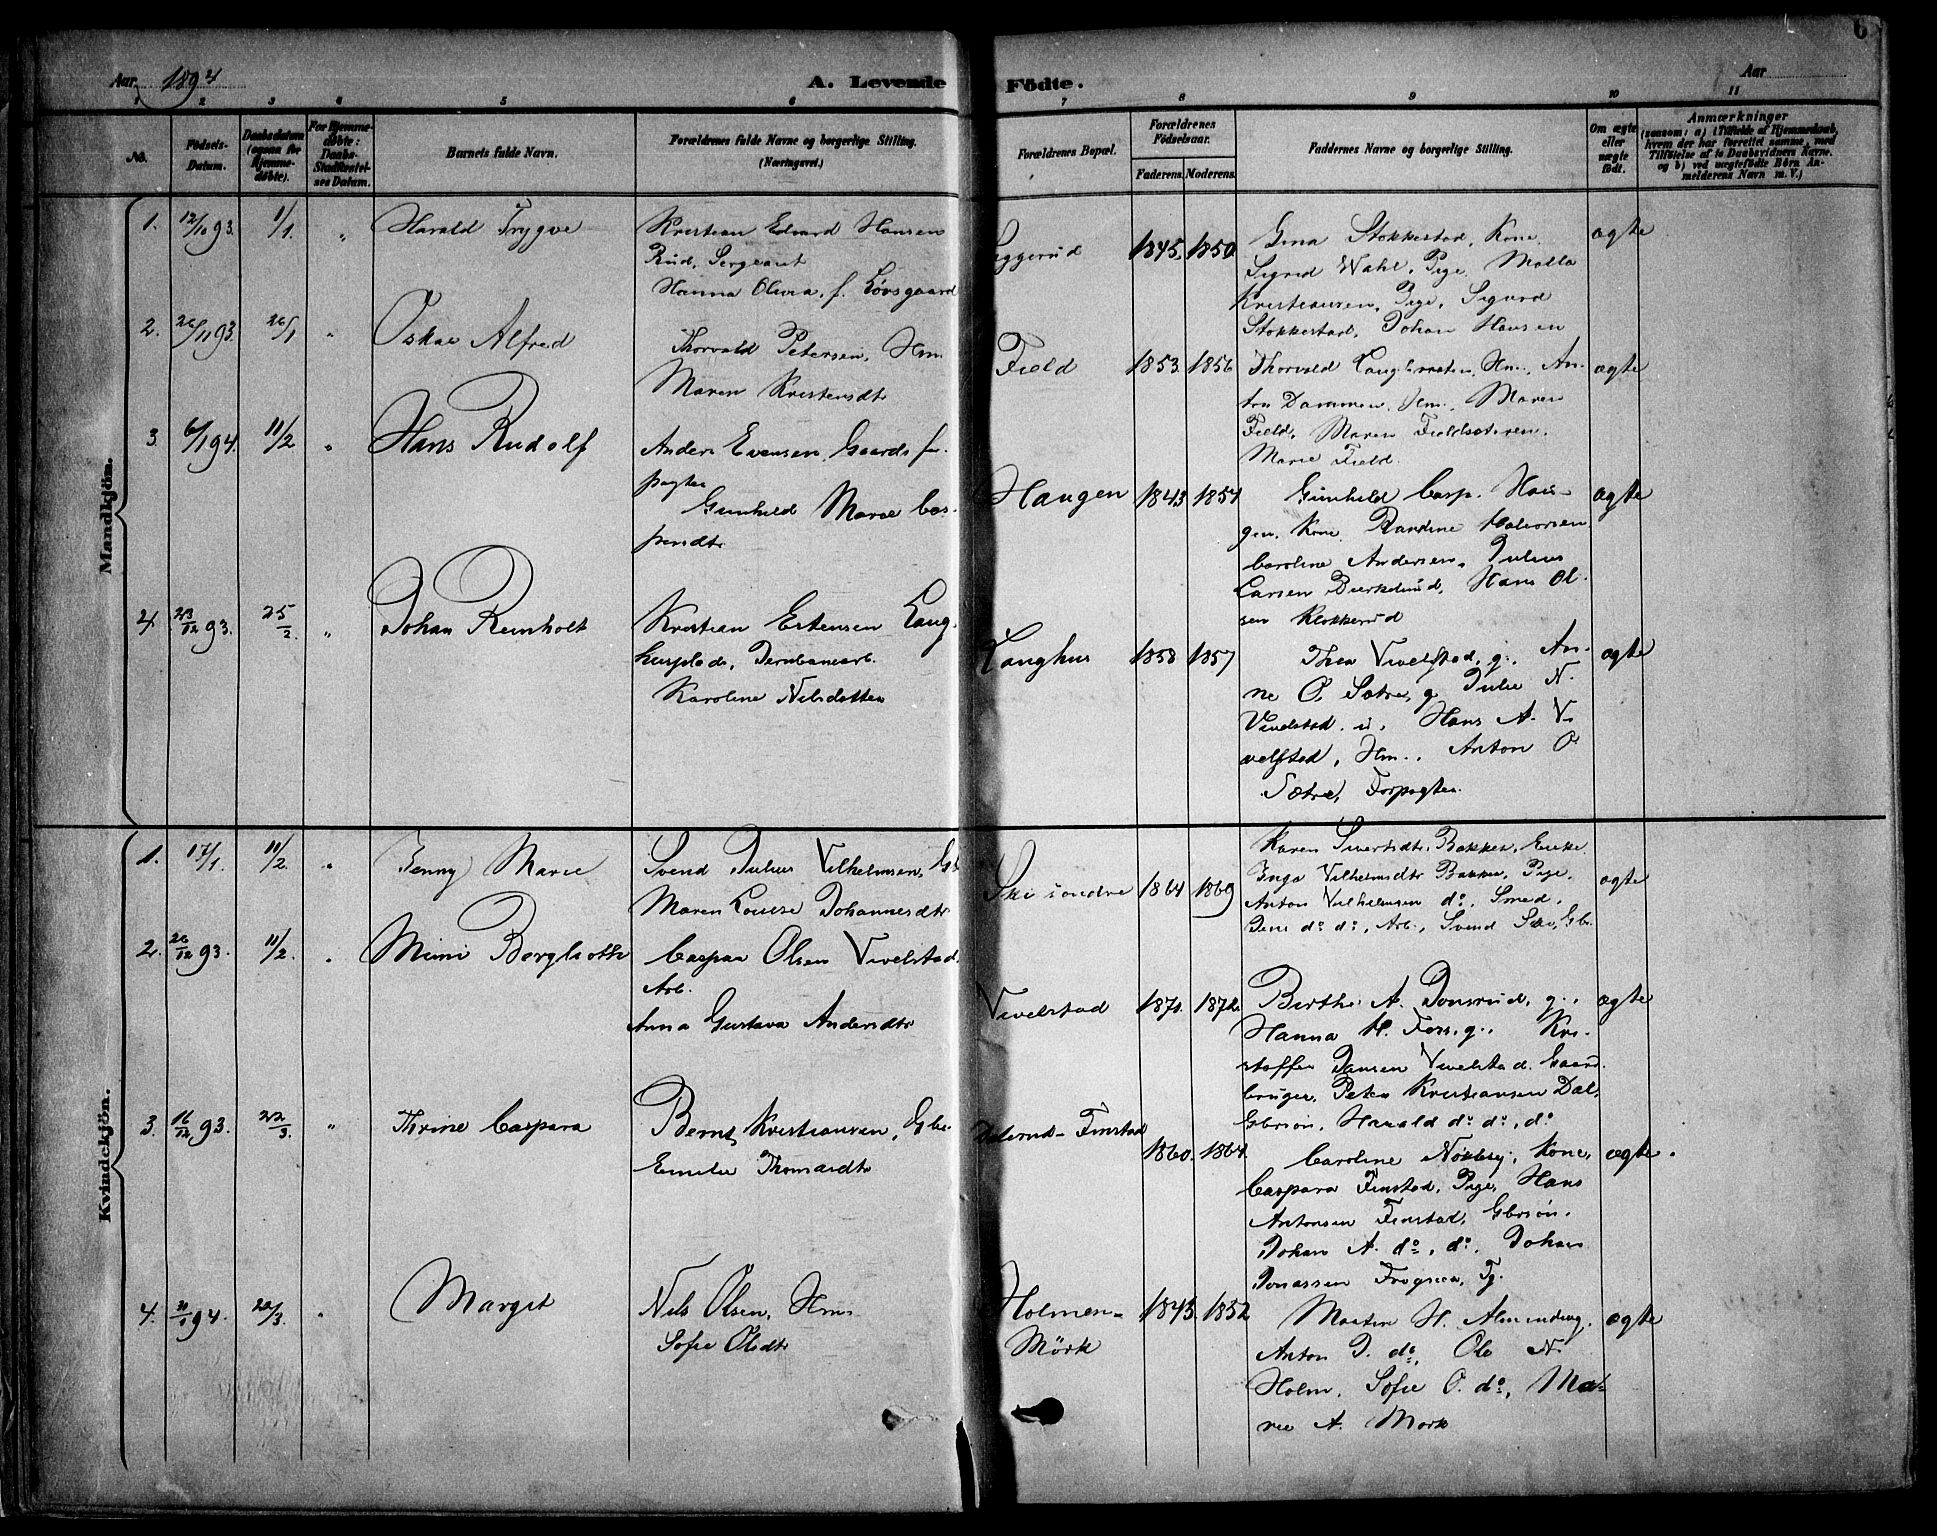 6
Aar 1894
A. Levende
Födte.
Aar
1 2 3 4 5 6
7 8 9 10 11
No.
Födsels-
Datum.
Daabsdatum
(ogsaa for
Hjemme-
döbte).
For Hjemme-
döbte:
Daabs-
Stadfæstel-
ses Datum.
Barnets fulde Navn.
Forældrenes fulde Navne og borgerlige Stilling.
(Næringsvei.)
Forældrenes Bopæl.
Forældrenes
Födselsaar.
Faderens. Moderens.
Faddernes Navne og borgerlige Stilling.
Om ægte
eller
uægte
født.
Anmærkninger
(saasom: a) i Tilfælde af Hjemmedaab,
hvem der har forrettet samme, med
Tilföielse af to Daabsvidners Navne.
og b) ved uægtefödte Börn An-
melderens Navn m. V.)
Mandkjön.
1. 12/10 93. 1/1. " Harald Trygve
Kristian Edvard Hansen
Rud, Sergeant
Hanna Olivia, f. Lövsgaard
1845. 1850.
Gina Stokkestad, Kone
Sigrid Wahl, Pige, Molla
Kristiansen, Pige, Sigurd
Stokkestad, Johan Hansen
ægte
2. 26/11 93. 26/1 " Oskar Alfred
Thorvald Petersen, Hm.
Maren Kristensdtr
Field 1853. 1856
Thorvald Langbraaten, Hm., An-
ton Dammen, Hm., Maren
Field, Maren Fieldsæteren.
Marie Field.
ægte
3 6/1 94. 11/2 " Hans Rudolf
Anders Evensen, Gaardsfor-
pagter
Gunhild Marie Cas-
persdtr
Haugen 1843 1854
Gunhild Casp. Hau-
gen, Kone Randine Halvorsen
Caroline Andersen, Julius
Larsen Buerkelund, Hans Ol-
sen Klokkerud
ægte
4. 23/12 93. 25/2. " Johan Reinholt
Kristian Estensen Lang-
husplads, Jernbanearb.
Karoline Nilsdatter
Langhus 1858 1857
Thea Vivelstad, g., An-
ne O. Sætre, g. Julie N.
Vivelstad. u., Hans A. Vi-
velstad, Hm., Anton O
Sætre, Forpagter.
ægte
Kvindekjön.
1. 17/1. 11/2 " Jenny Marie
Svend Julius Vilhelmsen, Gb.
Maren Louise Johannesdtr
Ski söndre 1864 1869
Karen Sivertsdtr, Bakken, Enke
Inga Vilhelmsdtr Bakken, Pige,
Anton Vilhelmsen do, Smed,
Jens do do, Arb., Svend Ski, Gb.
ægte
2. 26/12 93. 11/2. " Mimi Bergliotte
Caspar Olsen Vivelstad,
Arb.
Anna Gustava Andersdtr
Vivelstad 1871. 1872.
Birthe A. Jonsrud, g.,
Hanna M. Foss, g., Kri-
stoffer Jansen Vivelstad Gaard-
bruger, Peter Kristiansen Dal,
Gbrsön, Harald do do, do
ægte
3. 16/12 93. 22/3. " Thrine Caspara
Bernt Kristiansen, Gbr
Emilie Thomasdtr
Dalerud-Finstad
1860. 1864
Caroline Nökleby, Kone,
Caspara Finstad, Pige, Hans
Antonsen Finstad, Gbrsön.
Johan A. do, do, Johan
Jonassen Frogner, Tj.
ægte.
4. 94. 22/3. " Margit
Nils Olsen, Hm.
Sofie Olsdtr
Holmen-
Mörk
1843. 1852
Martin H. Almindrag,
Anton J. do, Ole N.
Holm, Sofie O. do, Ma-
rie A. Mörk
ægte